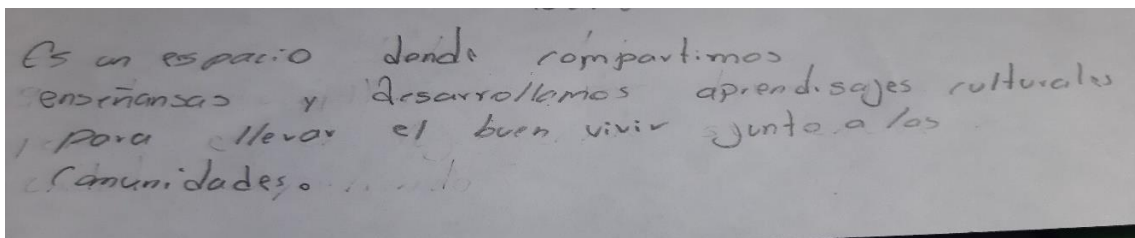 Es un espacio donde compartimos
enseñansas y desarrollamos aprendisajes culturales
para llevar el buen vivir junto a las
Comunidades.